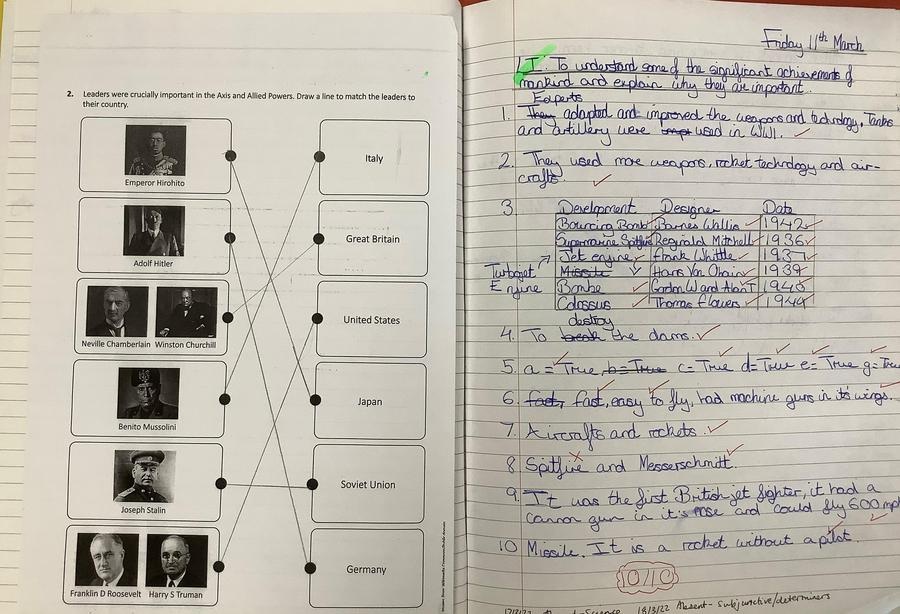 2. Leaders were crucially important in the Axis and Allied Powers. Draw a line to match the leaders to
their country.
Emperor Hirohito
Italy
Adolf Hitler
Great Britain
Neville Chamberlain Winston Churchill
United States
Benito Mussolini
Japan
Joseph Stalin
Soviet Union
Franklin D Roosevelt Harry S Truman
Germany
Friday 11th March
L.I. To understand some of the significant achievements of
mankind and explain why they are important.
Experts
1. They adapted and improved the weapons and technology, Tanks
and artillery were used in WW1.
2. They used more weapons, rocket technology and air-
crafts.
3. Development Designer Date
Bouncing Bomb Barnes Wallis 1942
Supermarine Spitfire Reginald Mitchell 1936
Jet engine Frank Whittle 1937
Turbojet Engine Missile Hans Von Ohain 1939
Bombe Gordon W and Alan T 1940
Colossus Thomas Flowers 1944
destroy
4. To break the dams.
5. a = True, b = True c = True d = True e = True g = True
6. fast, fast, easy to fly, had machine guns in it's wings.
7. Aircrafts and rockets.
8. Spitfire and Messerschmitt.
9. It was the first British jet fighter, it had a
cannon gun in it's nose and could fly 600 mph
10 Missile. It is a rocket without a pilot.
10/10
18/3/22 Absent - subjunctive/determiners